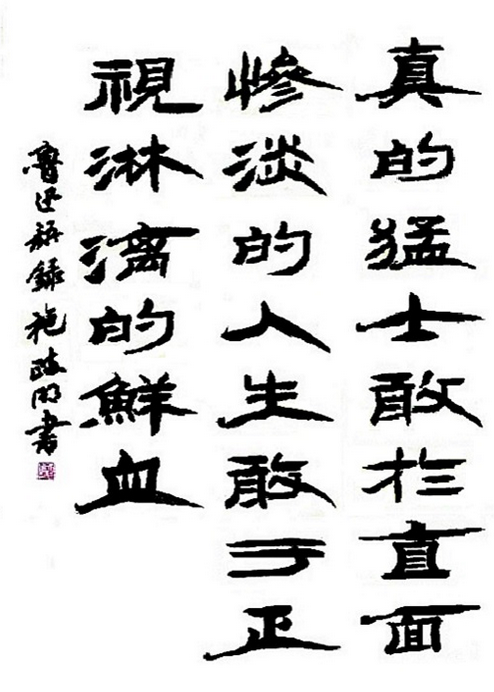 真的猛士敢扵直面
慘淡的人生敢于正
視淋漓的鮮血
魯迅語録 施政明書